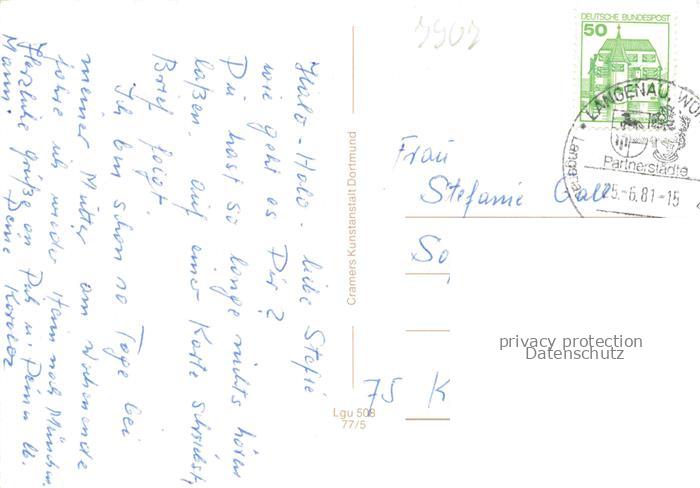 Halo - Halo - liebe Stefie
wie geht es Dir?
Du hast so lange nichts hören
laßen. auf einer Karte schriebst,
Brief folgt.
Ich bin schon 10 Tage bei
meiner Mutter am Wochenende
fahre ich wieder Heim nach München.
Herzliche Grüße an Dich u. Deinen lb.
Mann. Deine
7907
Cramers Kunstanstalt Dortmund
Lgu 508
77/5
DEUTSCHE BUNDESPOST
50
LANGENAU, WÜ
Langena
Partnerstädte
25.-6.81-15
Frau
Stefanie Gall
So
75 K
privacy protection
Datenschutz